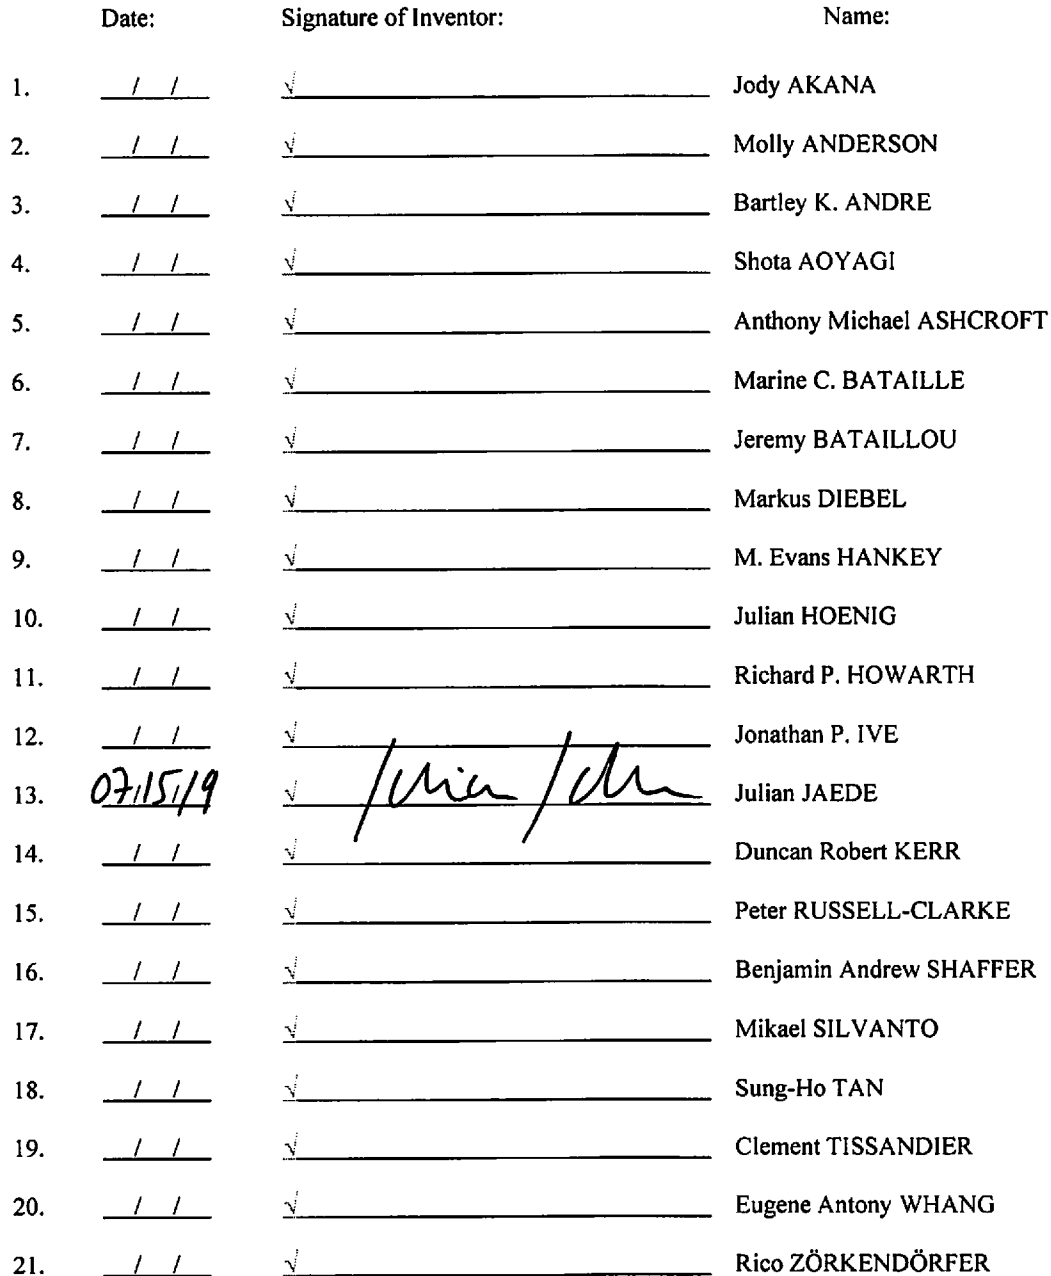 Date: Signature of Inventor: Name:
1. / / √ Jody AKANA
2. / / √ Molly ANDERSON
3. / / √ Bartley K. ANDRE
4. / / √ Shota AOYAGI
5. / / √ Anthony Michael ASHCROFT
6. / / √ Marine C. BATAILLE
7. / / √ Jeremy BATAILLOU
8. / / √ Markus DIEBEL
9. / / √ M. Evans HANKEY
10. / / √ Julian HOENIG
11. / / √ Richard P. HOWARTH
12. / / √ Jonathan P. IVE
13. 07/15/19 √ Julian JAEDE
14. / / √ Duncan Robert KERR
15. / / √ Peter RUSSELL-CLARKE
16. / / √ Benjamin Andrew SHAFFER
17. / / √ Mikael SILVANTO
18. / / √ Sung-Ho TAN
19. / / √ Clement TISSANDIER
20. / / √ Eugene Antony WHANG
21. / / √ Rico ZÖRKENDÖRFER